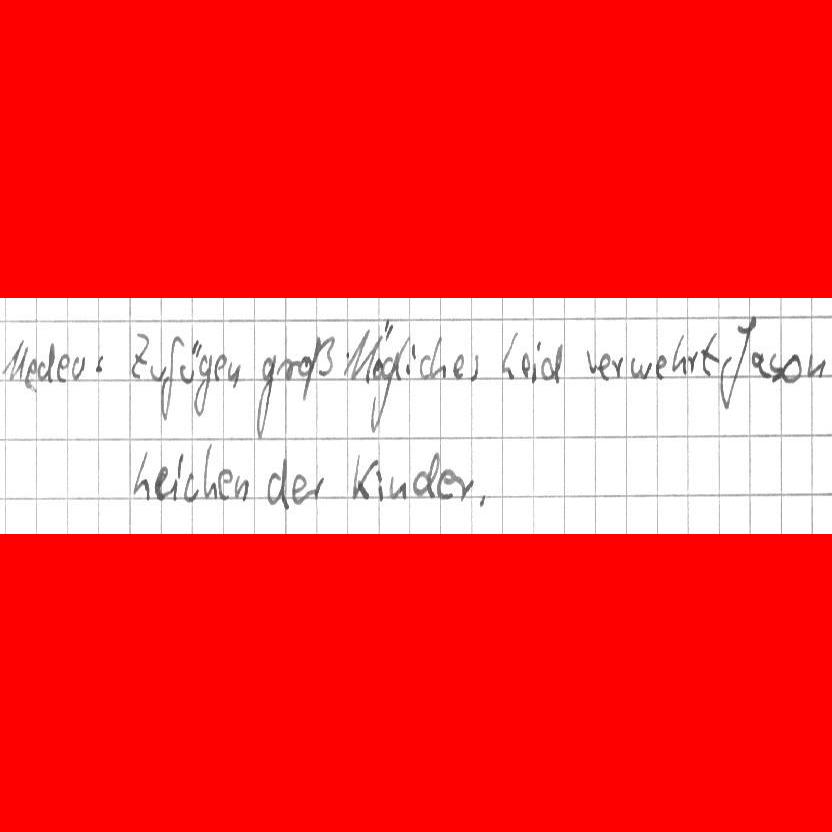 Medea: Zufügen groß Mögliches Leid verwehrt Jason
Leichen der Kinder.